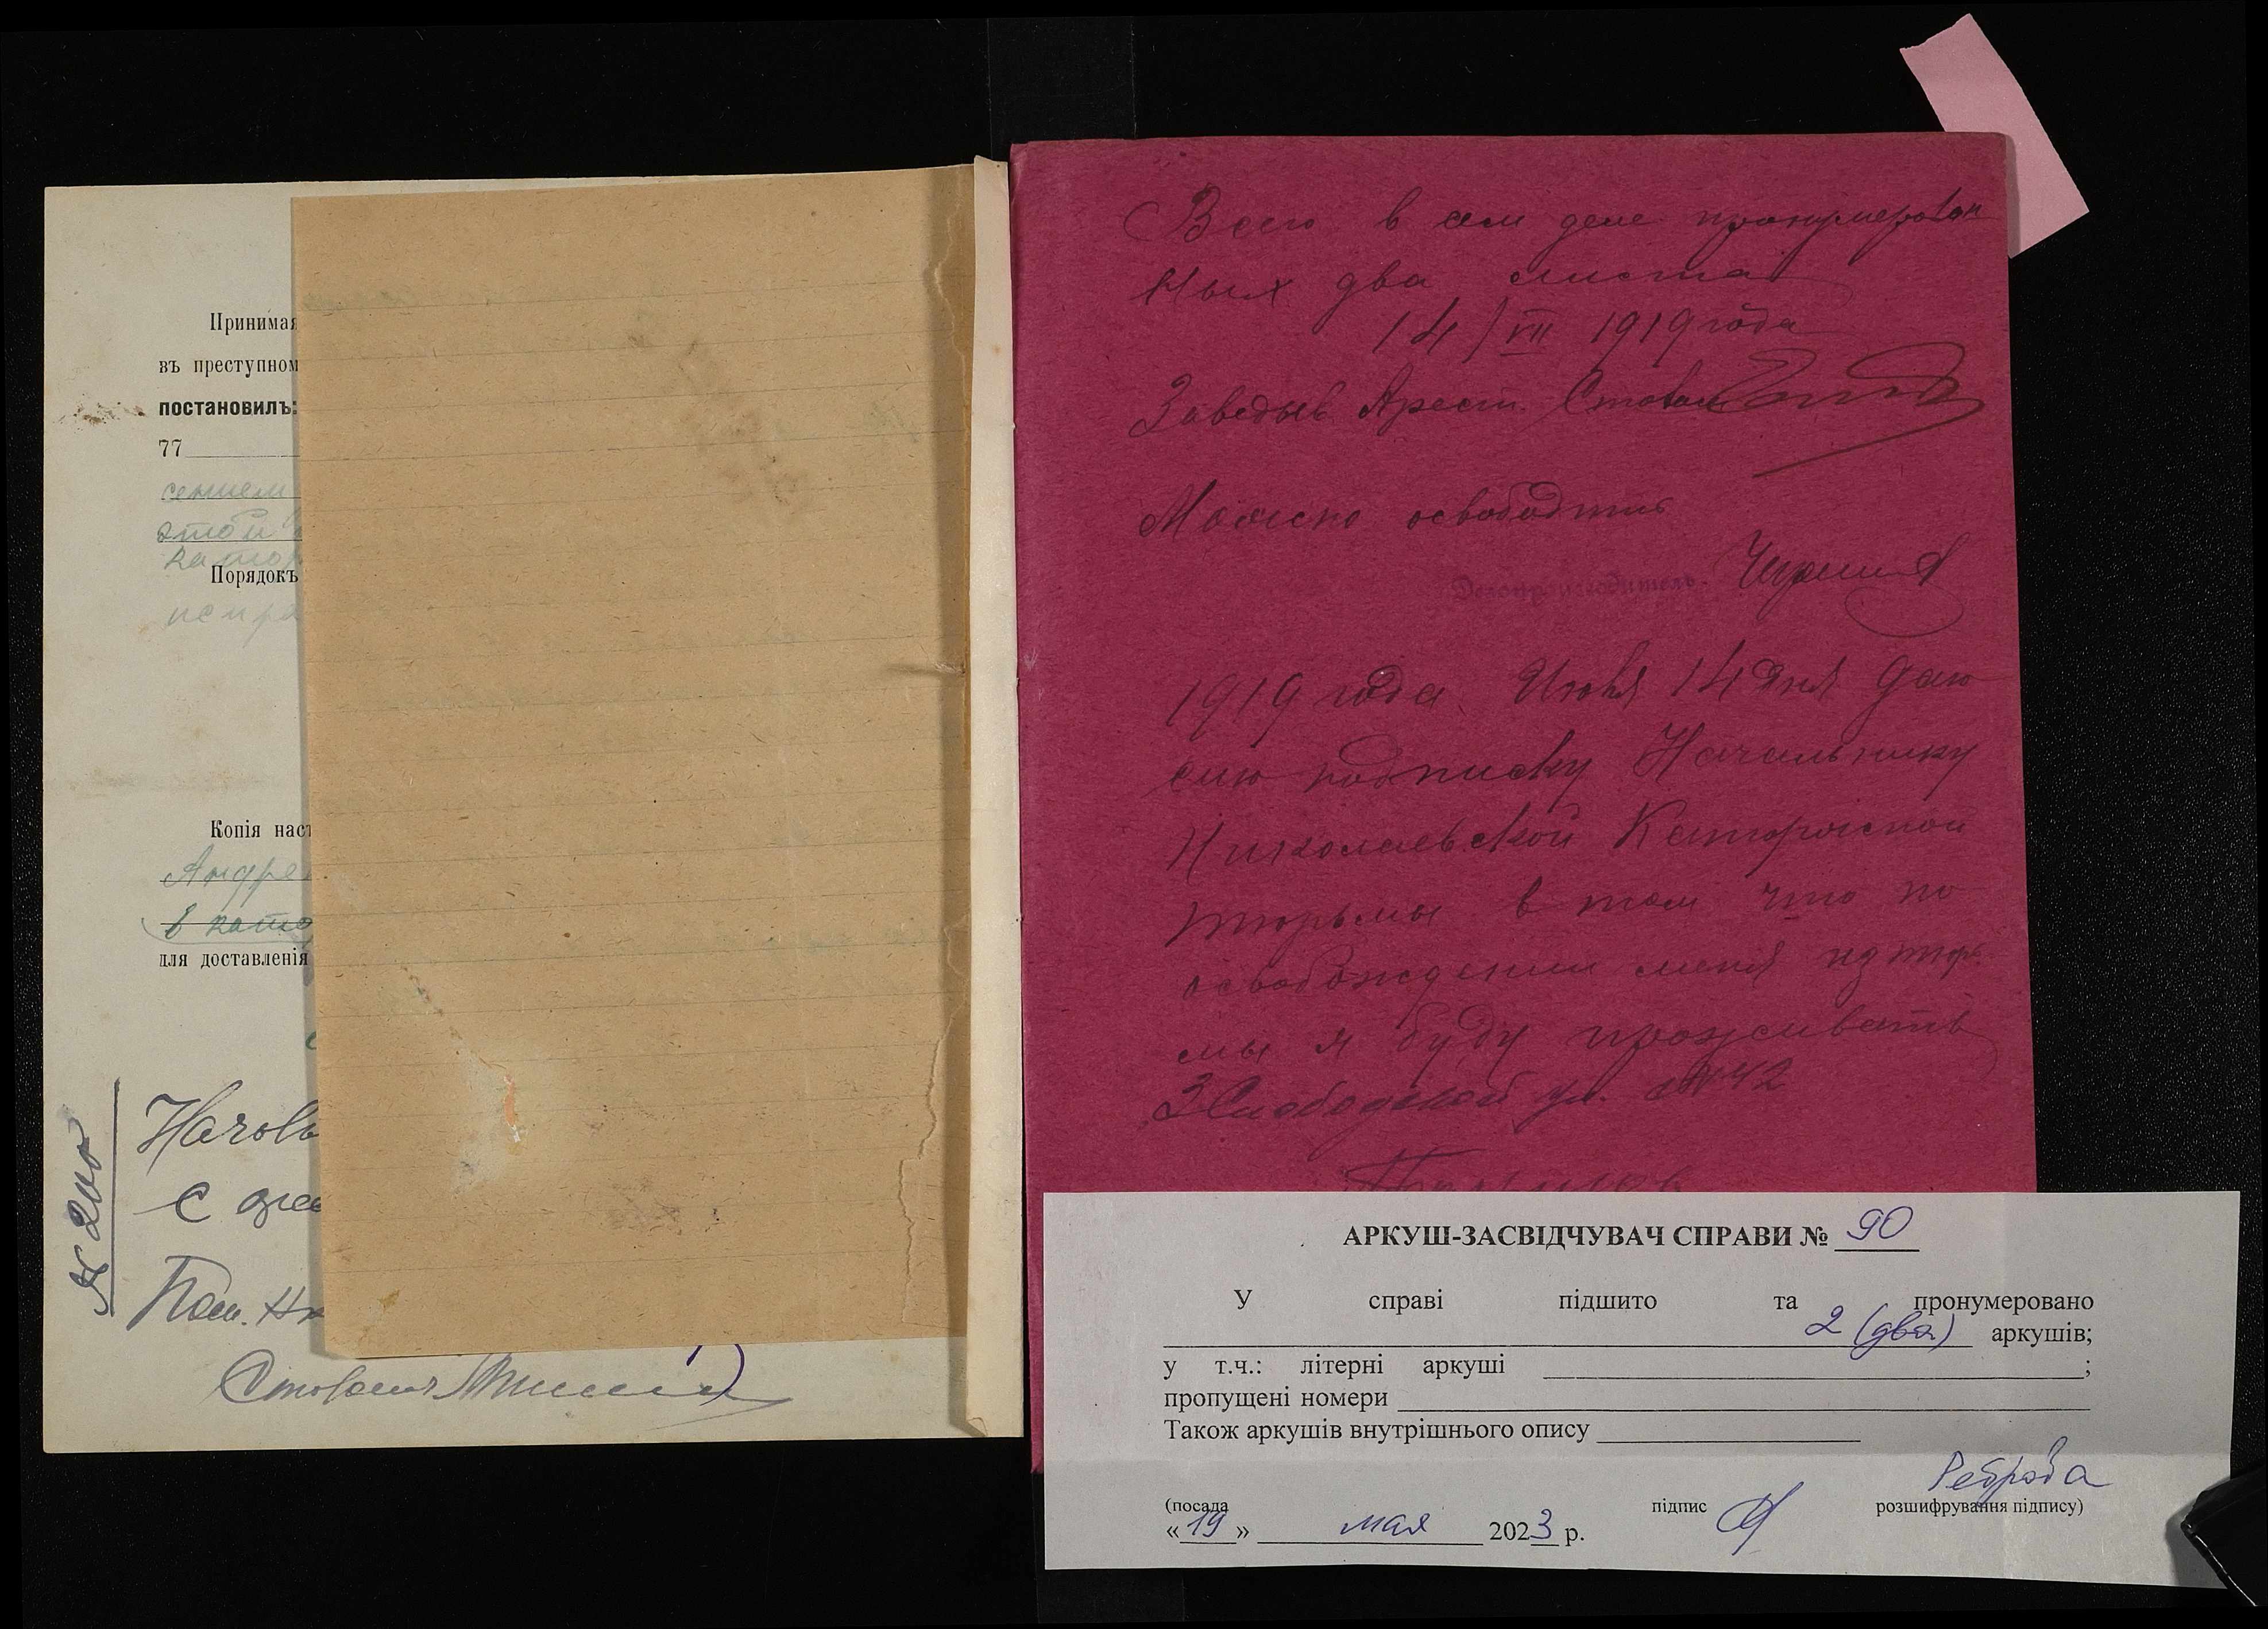 Принимая
въ преступном
постановилъ:
77
сением
этой
катор
Порядокъ
испра
Копія наст
Андре
в като
для доставленія
№ 200
Началь
С
Пом. На
Всего в сем деле пронумерован
ных два листа
14/VII 1919 года
Заведыв Арест. Столом
Можно освободить
Делопроизводитель
1919 года Июля 14 дня даю
сию подписку Начальнику
Николаевской Каторжной
тюрьмы в том что по
освобождении меня из тюрь
мы я буду проживать
3 Слободской ул. № 42
АРКУШ-ЗАСВІДЧУВАЧ СПРАВИ № 90
У справі підшито та пронумеровано
2 (два) аркушів;
у т.ч.: літерні аркуші ;
пропущені номери
Також аркушів внутрішнього опису
Реброва
(посада підпис розшифрування підпису)
«19» мая 2023 р.